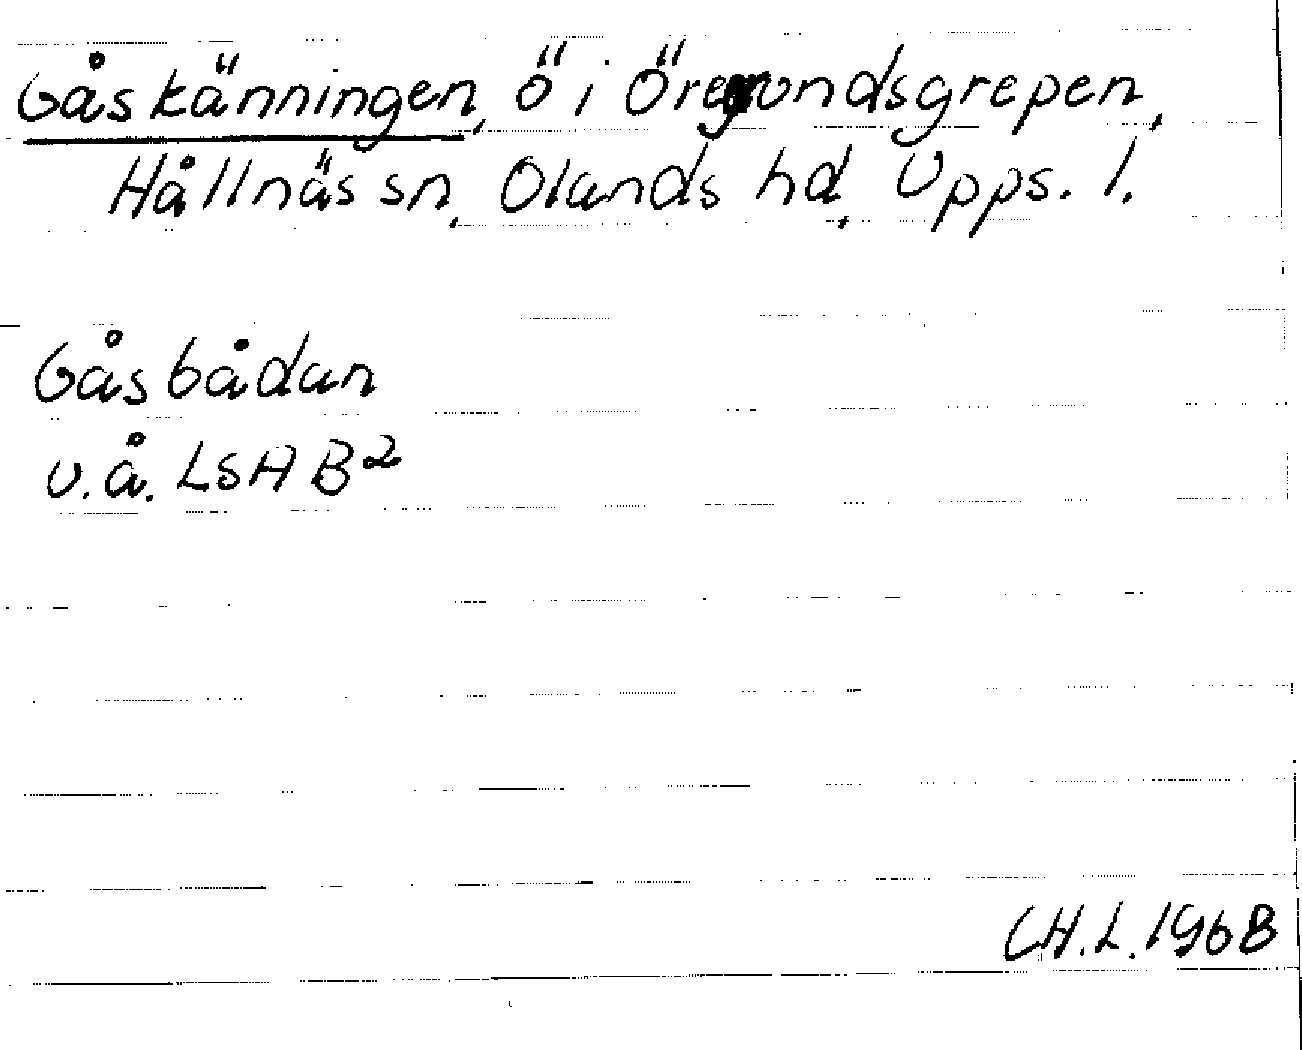 Gåskänningen, ö i Öregrundsgrepen,
Hållnäs sn, Olands hd, Upps. l.
Gåsbådan
u.å. LSA B2
CH.L. 1968